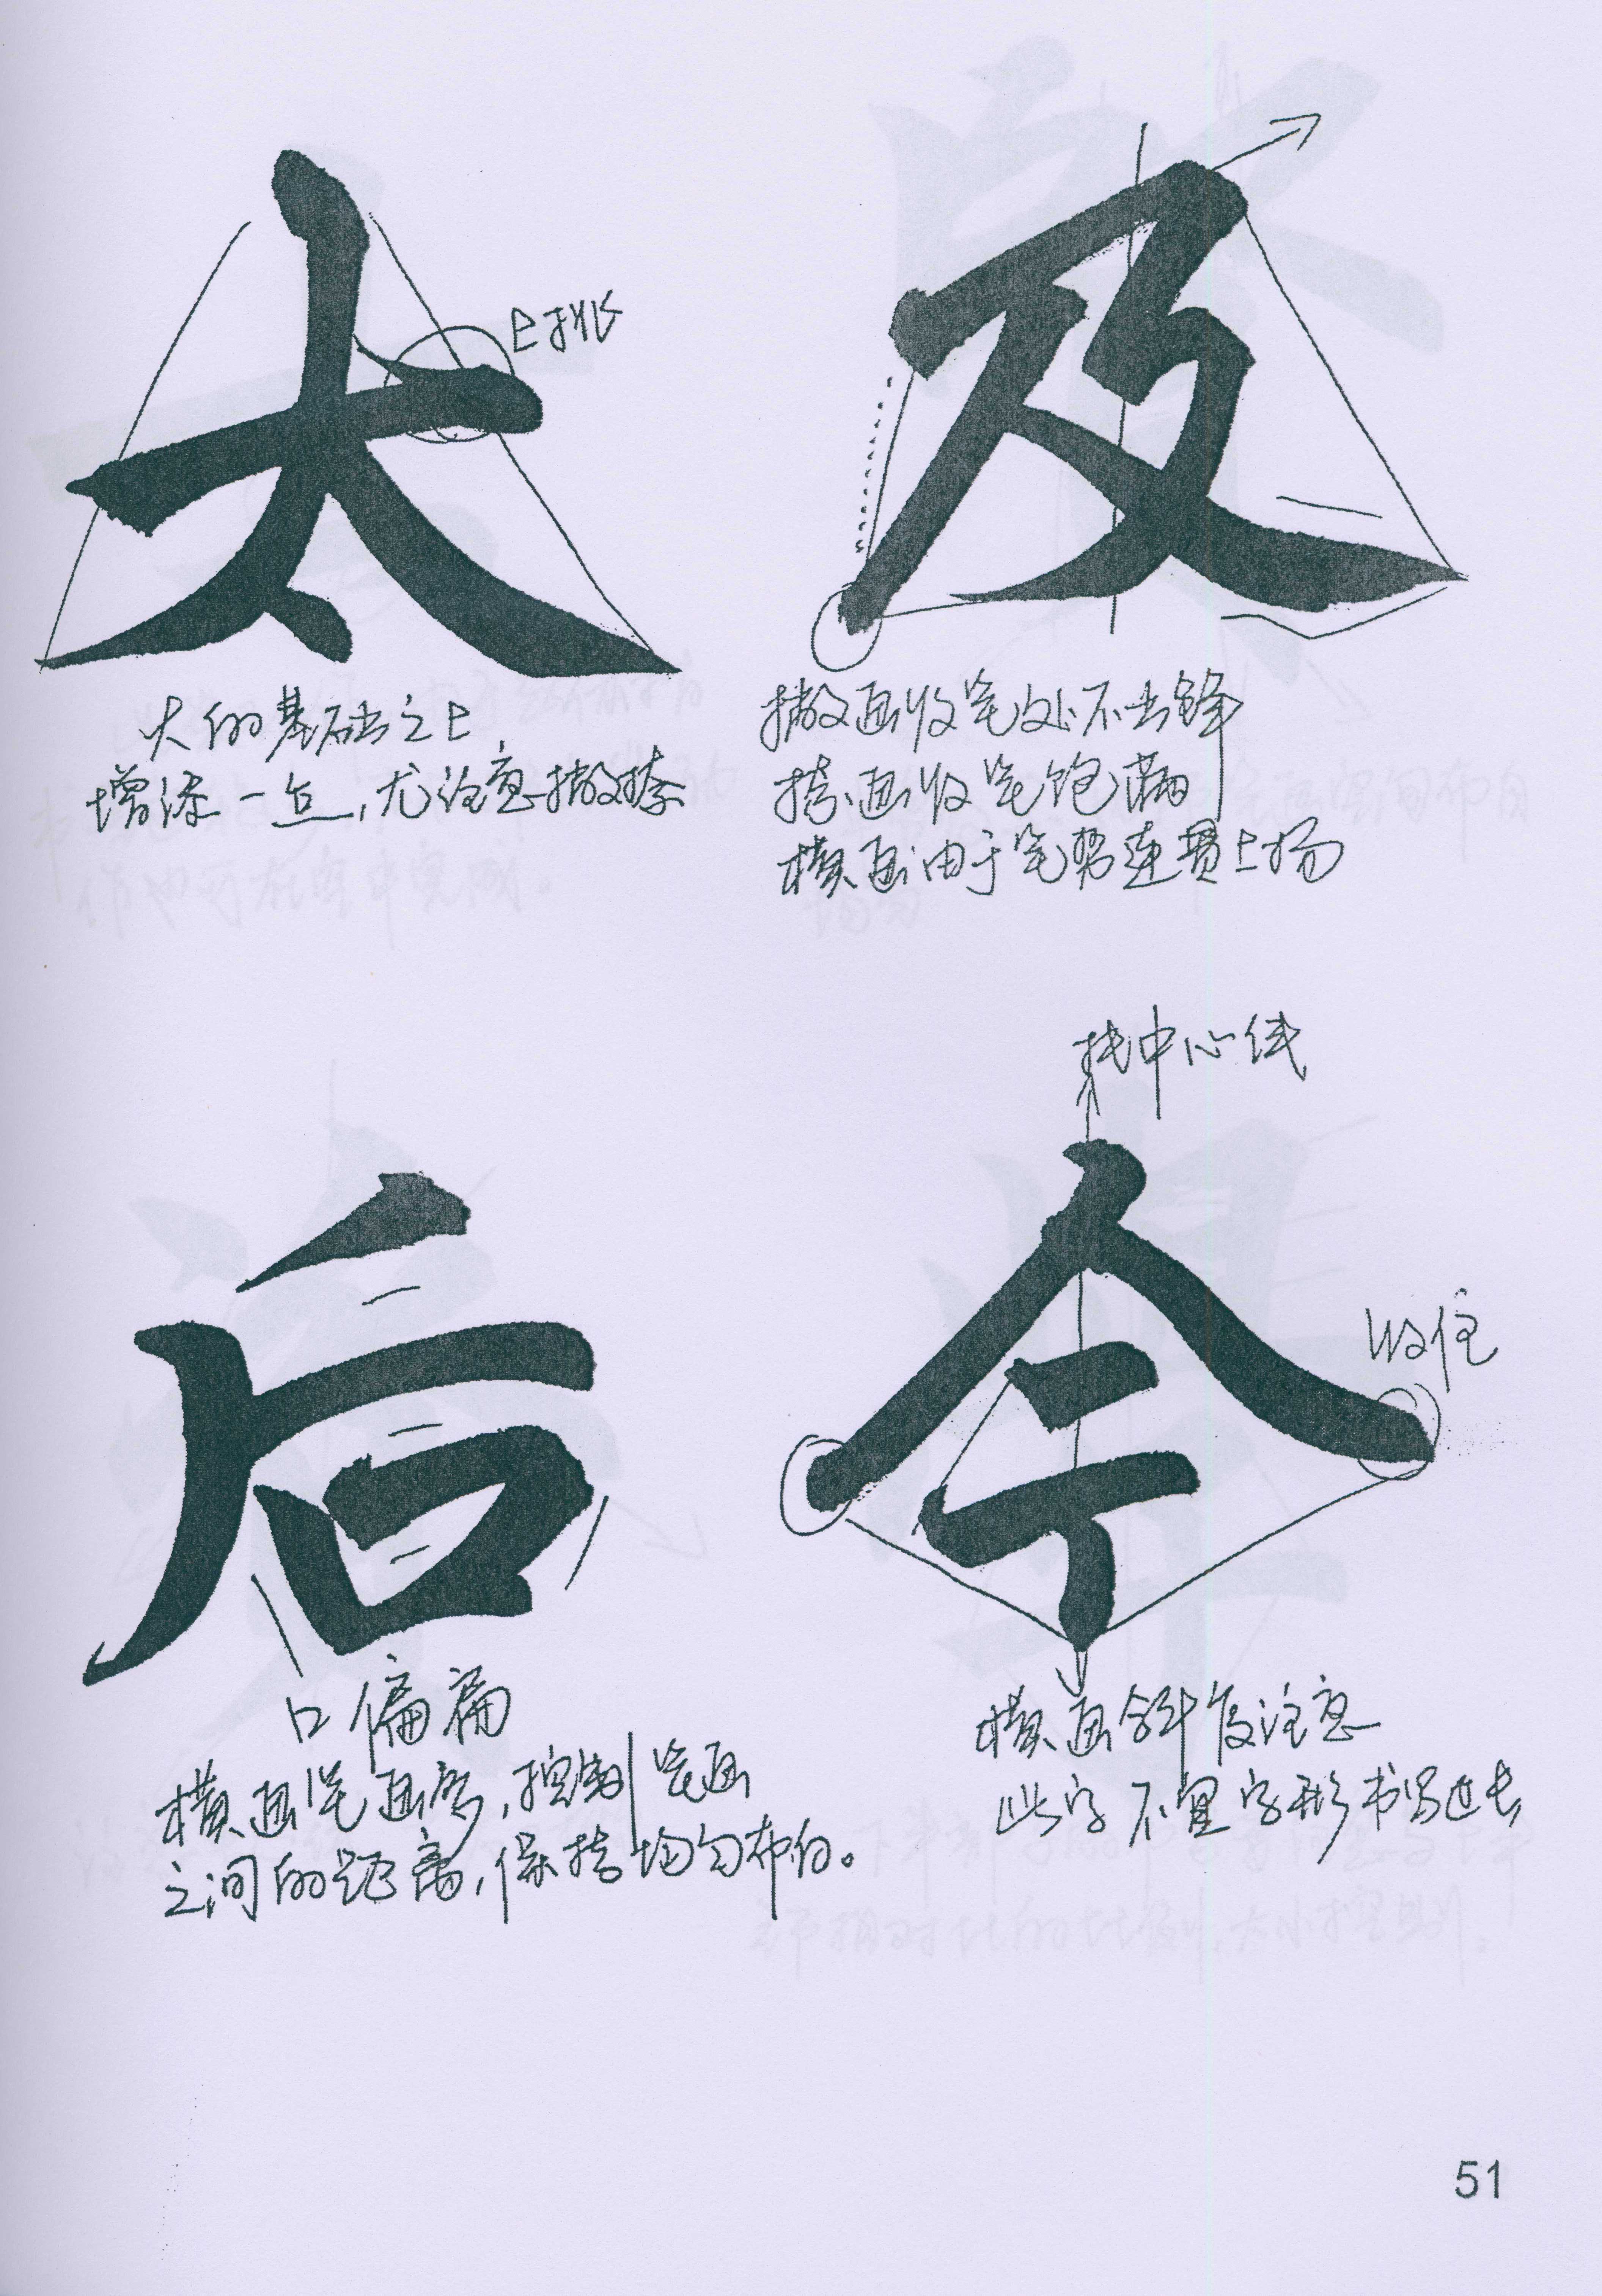 太
上挑
大的基础之上
增添一点，尤注意撇捺
及
撇画收笔处不出锋
捺画收笔饱满
横画由于笔势连贯上扬
后
口偏扁
横画笔画多，控制笔画
之间的距离，保持均匀布白。
找中心线
今
收住
横画斜度注意
此字不宜字形书写过长
51